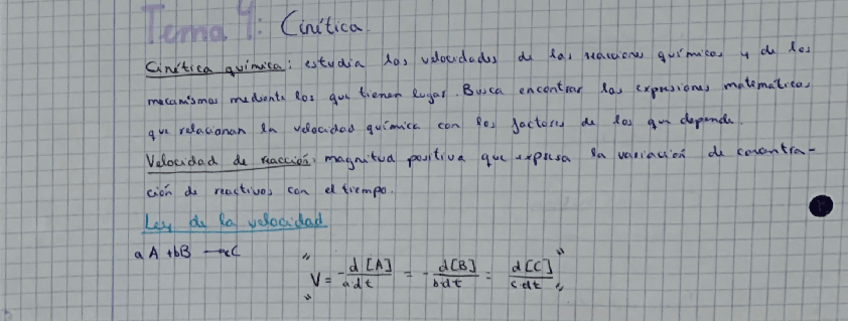 Tema 4: Cinética.
Cinética química: estudia las velocidades de las reacciones químicas y de los
mecanismos mediante los que tienen lugar. Busca encontrar las expresiones matemáticas
que relacionan la velocidad química con los factores de los que depende.
Velocidad de reacción: magnitud positiva que expresa la variación de concentra-
ción de reactivos con el tiempo.
Ley de la velocidad
aA + bB → cC
" V = - d[A] / a dt = - d[B] / b dt = d[C] / c dt "